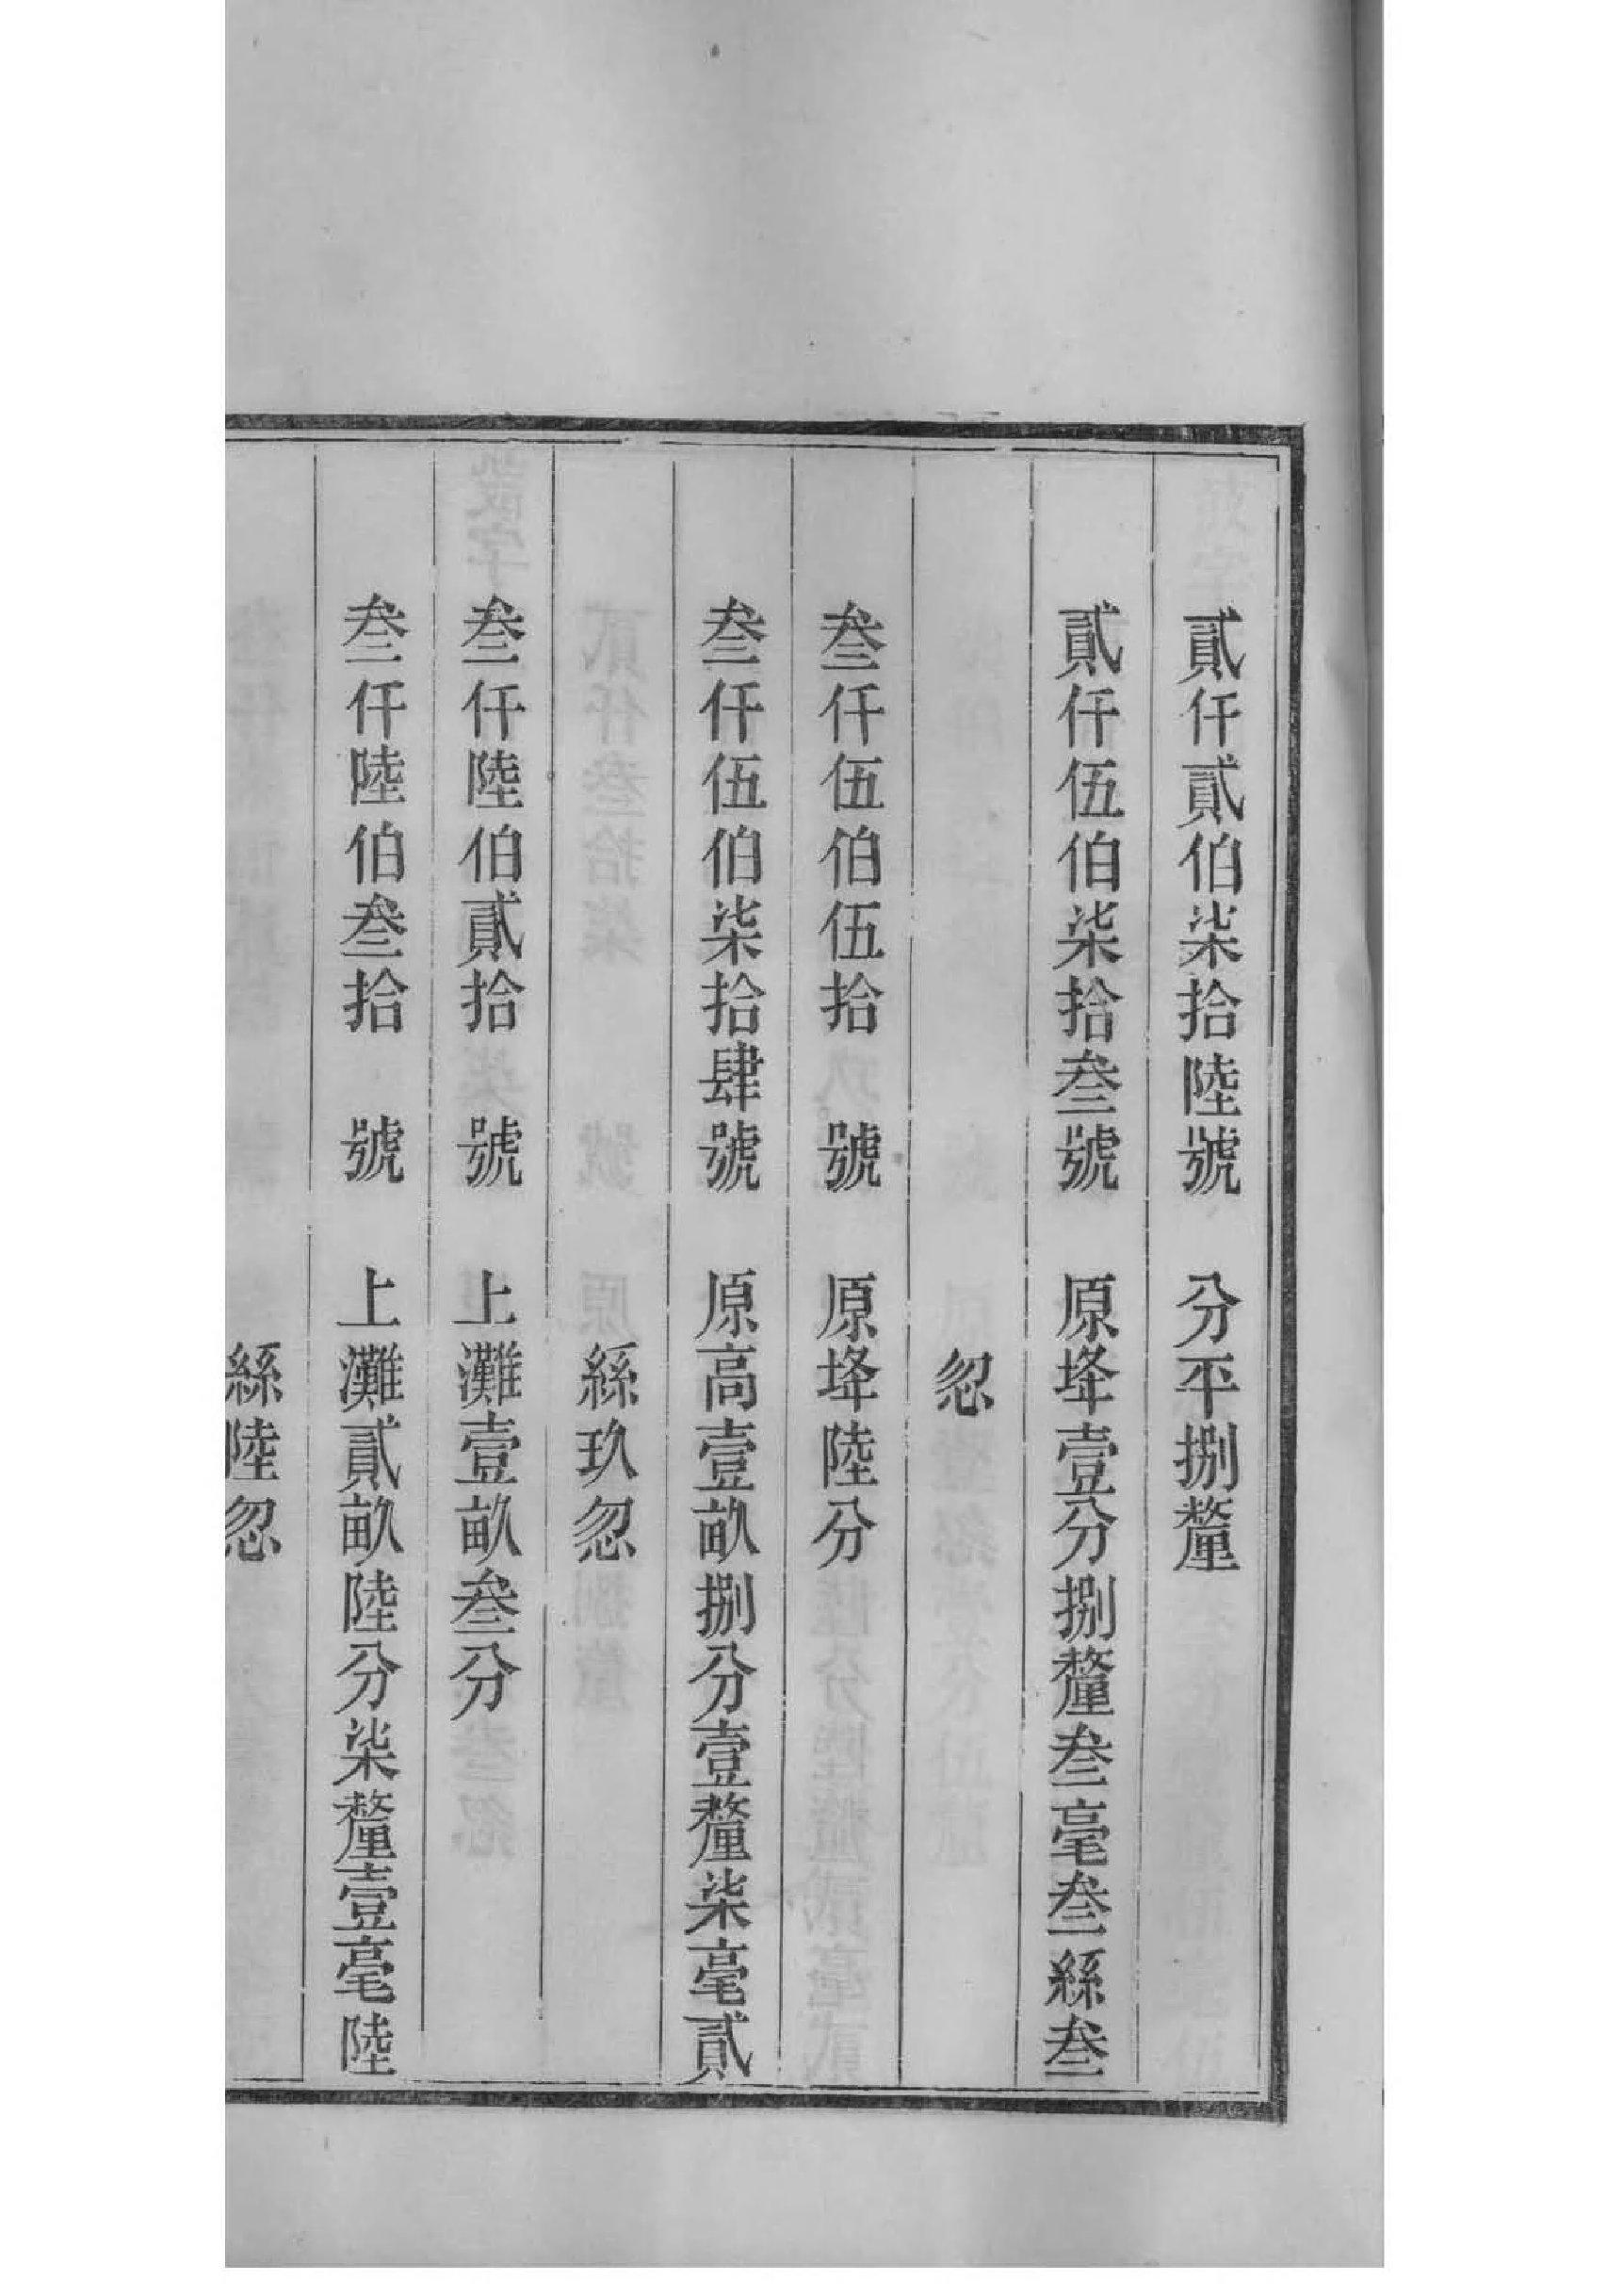 貳仟貳伯柒拾陸號　分平捌釐
貳仟伍伯柒拾叁號　原埄壹分捌釐叁毫叁絲叁
忽
叁仟伍伯伍拾　號　原埄陸分
叁仟伍伯柒拾肆號　原高壹畝捌分壹釐柒毫貳
絲玖忽
叁仟陸伯貳拾　號　上灘壹畝叁分
叁仟陸伯叁拾　號　上灘貳畝陸分柒釐壹毫陸
絲陸忽